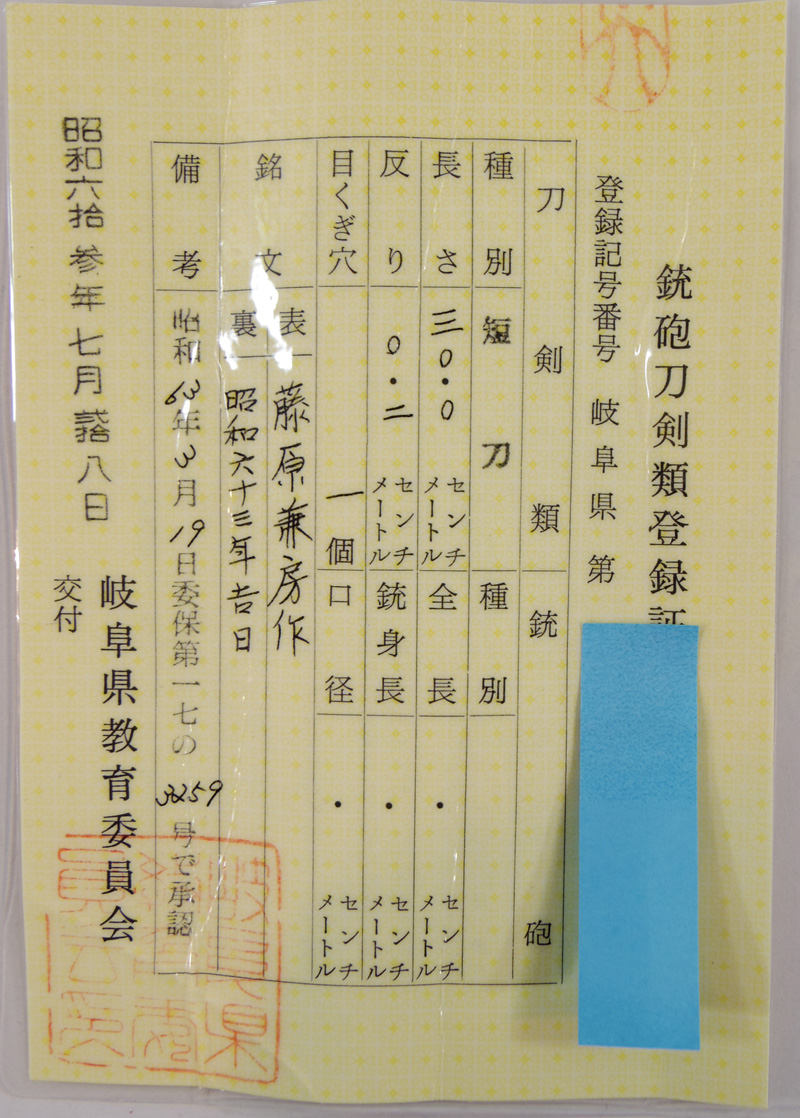 銃砲刀剣類登録証
登録記号番号 岐阜県 第
刀剣類 銃砲
種別 短刀 種別
長さ 三〇・〇 センチメートル 全長 ・ センチメートル
反り 〇・二 センチメートル 銃身長 ・ センチメートル
目くぎ穴 一個 口径 ・ センチメートル
銘文 表 藤原兼房作
裏 昭和六十三年吉日
備考 昭和63年3月19日委保第一七の3259号で承認
昭和六拾参年七月弐拾八日
岐阜県教育委員会
交付